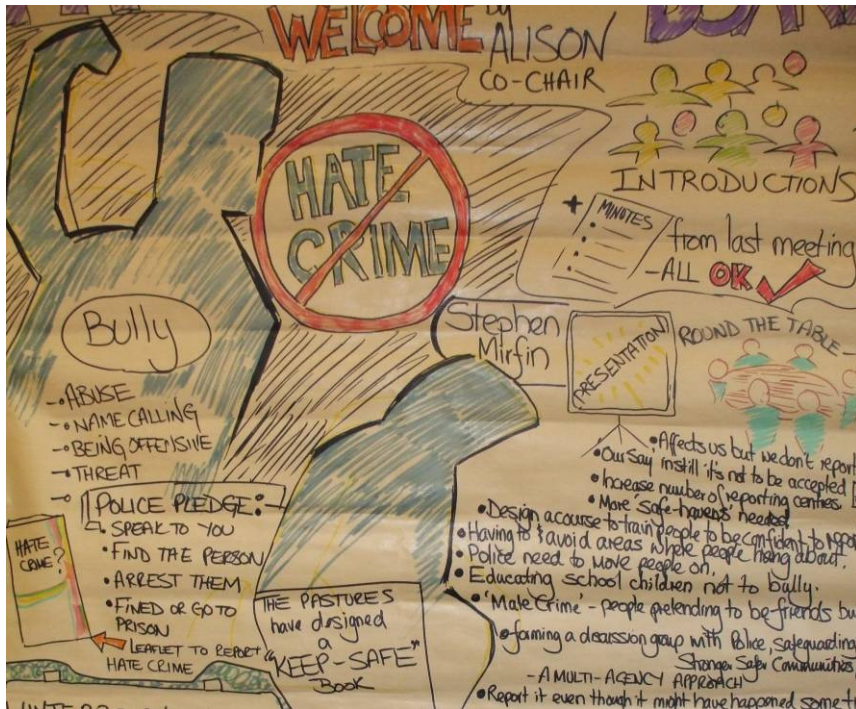 WELCOME by
ALISON
CO-CHAIR
INTRODUCTIONS
HATE
CRIME
+ MINUTES
from last meeting
-ALL OK
Bully
- ABUSE
- NAME CALLING
- BEING OFFENSIVE
- THREAT
Stephen
Mirfin
PRESENTATION
ROUND THE TABLE -
POLICE PLEDGE:-
• SPEAK TO YOU
• FIND THE PERSON
• ARREST THEM
• FINED OR GO TO
PRISON
HATE
CRIME?
LEAFLET TO REPORT
HATE CRIME
THE PASTURES
have designed
a
"KEEP-SAFE"
BOOK
• Affects us but we don't report
• Our say instill it's not to be accepted
• Increase number of reporting centres
• More 'safe-havens' needed
• Design a course to train people to be confident to
• Having to avoid areas where people hang about.
• Police need to move people on.
• Educating school children not to bully.
• 'Mate Crime' - people pretending to be friends
• forming a discussion group with Police, Safeguarding
Stronger Safer Communities
- A MULTI-AGENCY APPROACH
• Report it even though it might have happened